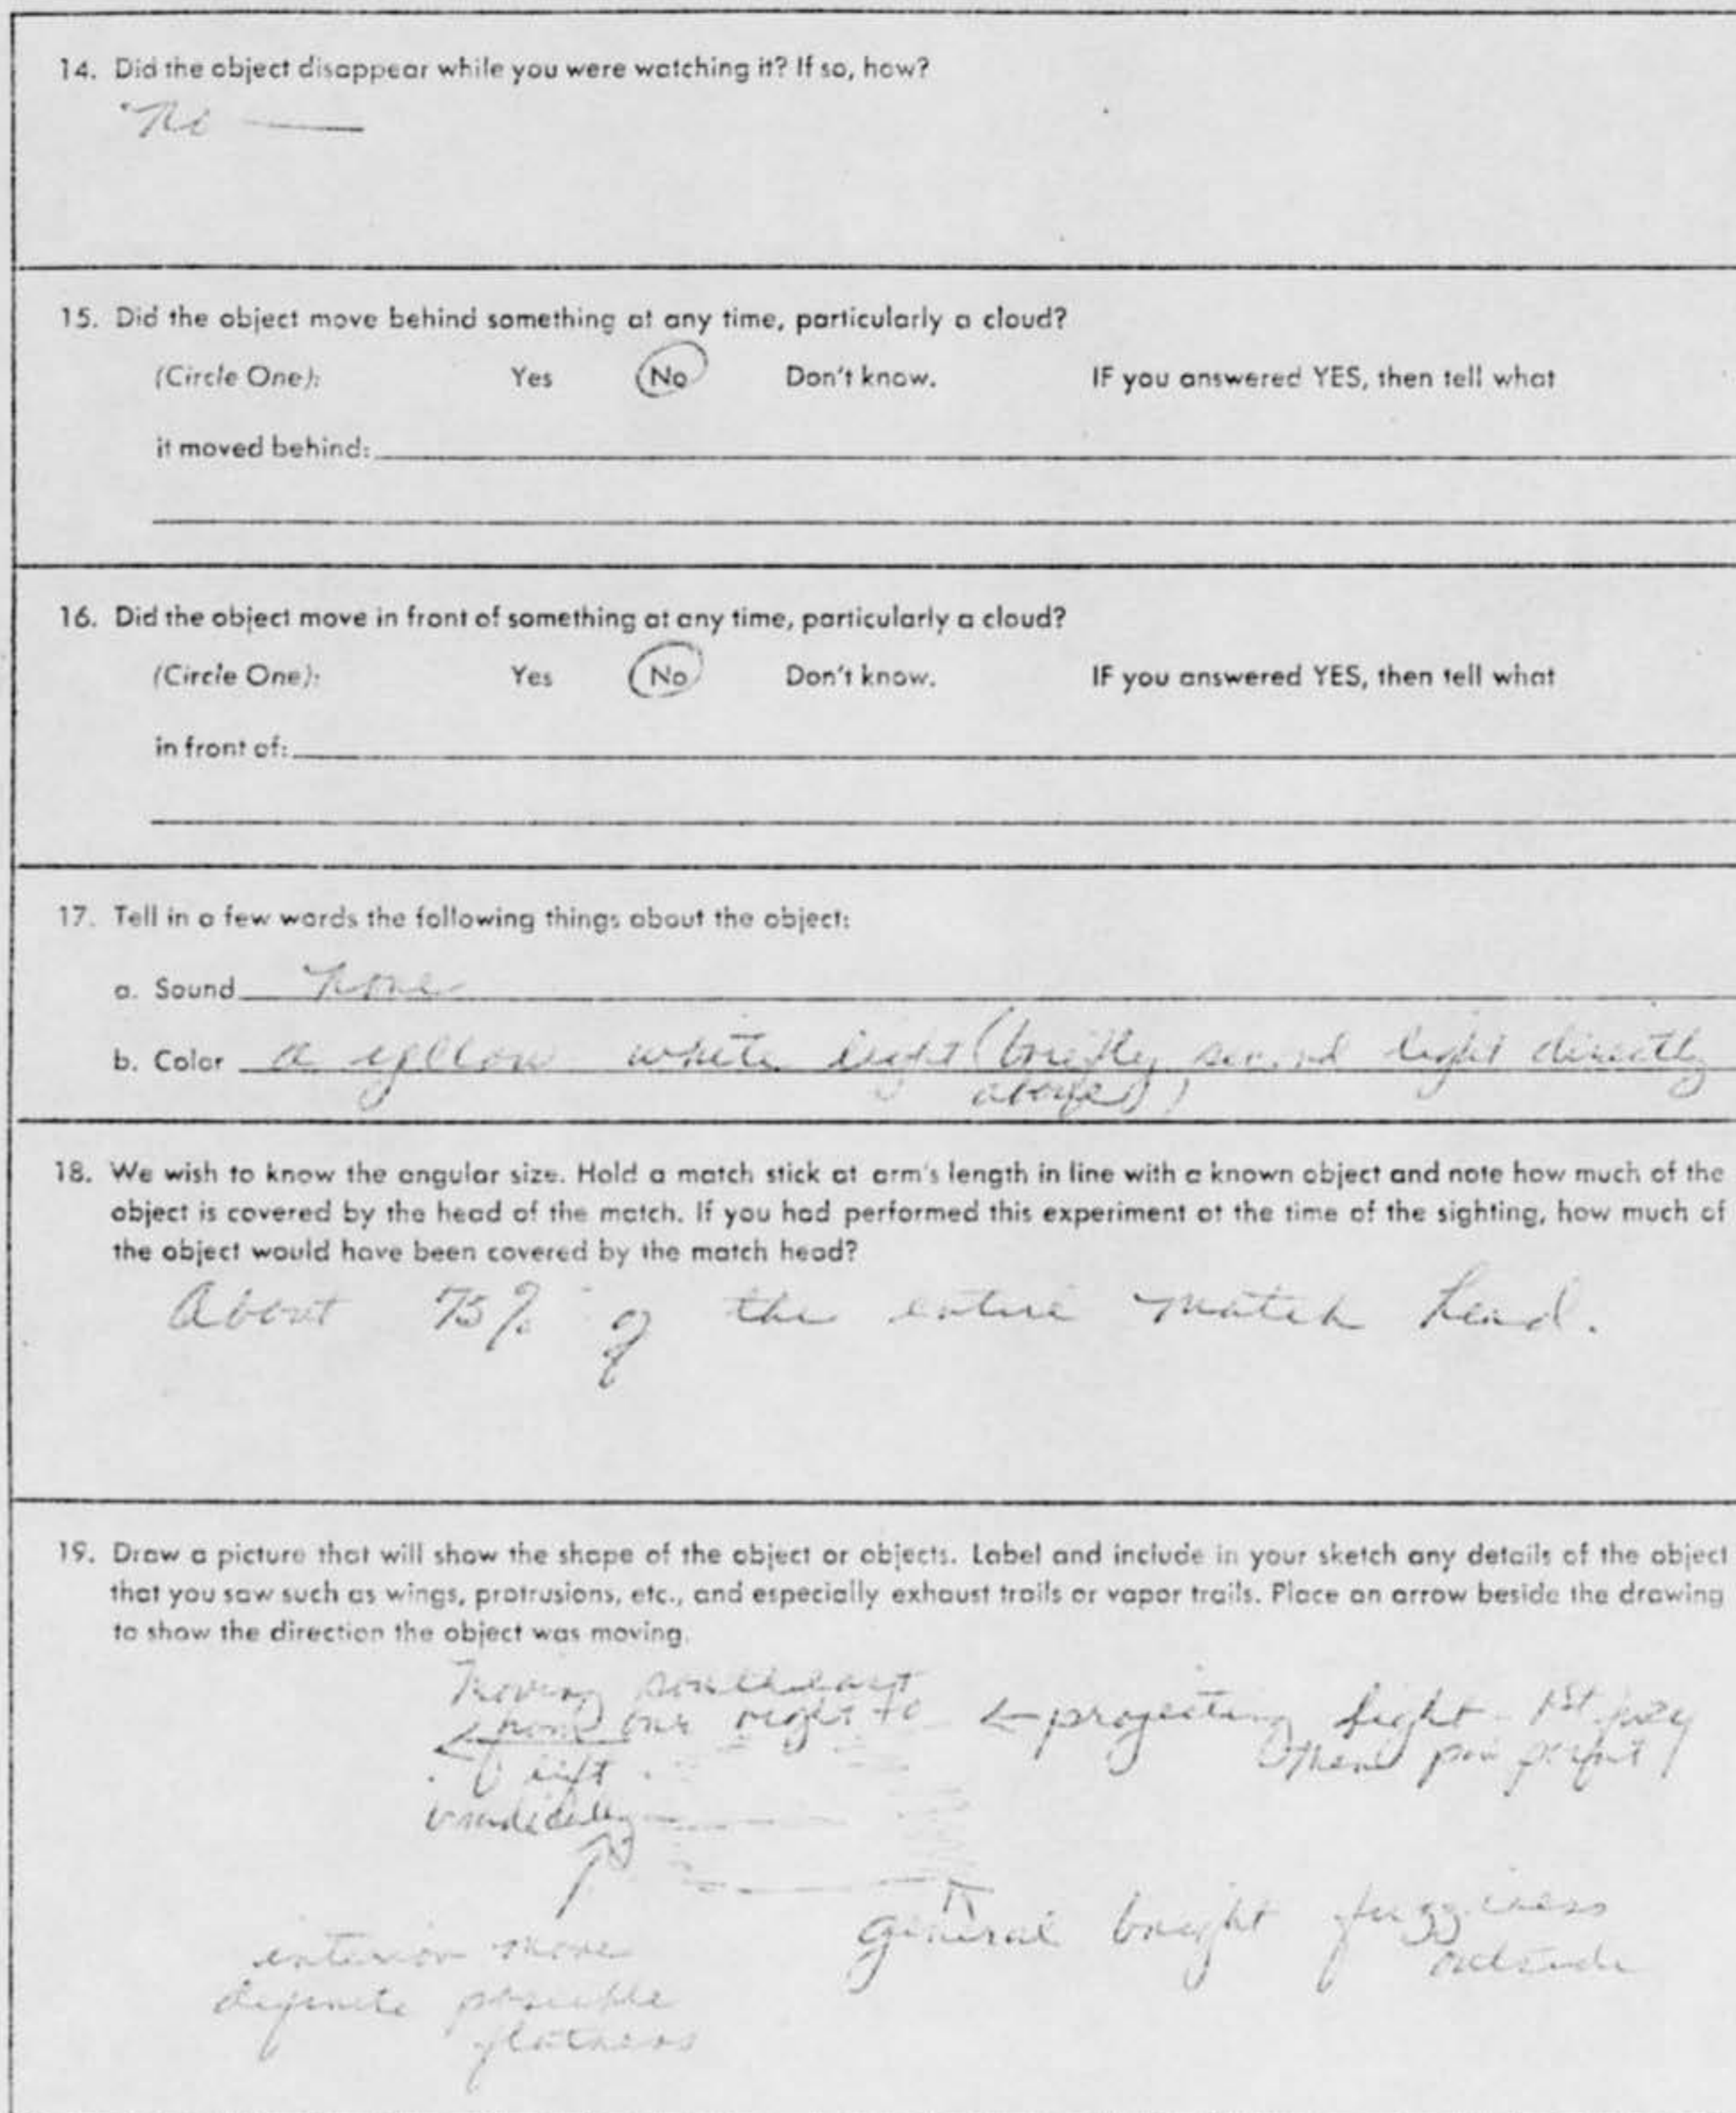 14. Did the object disappear while you were watching it? If so, how?
No —
15. Did the object move behind something at any time, particularly a cloud?
(Circle One): Yes No Don't know. IF you answered YES, then tell what
it moved behind:
16. Did the object move in front of something at any time, particularly a cloud?
(Circle One): Yes No Don't know. IF you answered YES, then tell what
in front of:
17. Tell in a few words the following things about the object:
a. Sound None
b. Color a yellow white light (briefly second light directly
above)
18. We wish to know the angular size. Hold a match stick at arm's length in line with a known object and note how much of the
object is covered by the head of the match. If you had performed this experiment at the time of the sighting, how much of
the object would have been covered by the match head?
About 75% of the entire match head.
19. Draw a picture that will show the shape of the object or objects. Label and include in your sketch any details of the object
that you saw such as wings, protrusions, etc., and especially exhaust trails or vapor trails. Place an arrow beside the drawing
to show the direction the object was moving.
Moving southeast
from our right to
left
← projecting light 1st
then
general bright fuzziness
outside
interior more
definite possible
flatness